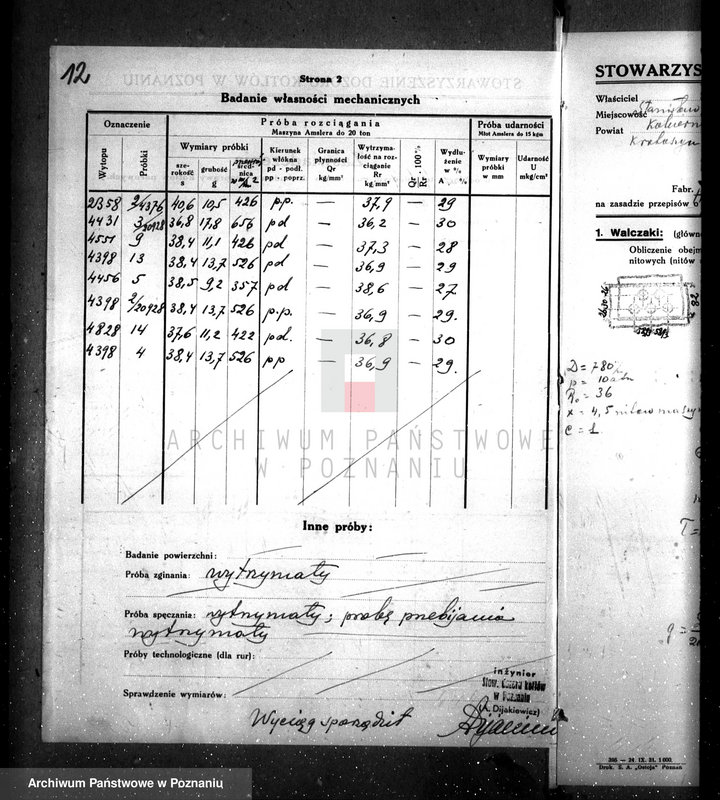 12
Strona 2
STOWARZYSZENIE DOZORU KOTŁÓW W POZNANIU
Badanie własności mechanicznych
Oznaczenie
Próba rozciągania
Maszyna Amslera do 20 ton
Próba udarności
Młot Amslera do 15 kgm
Wytopu
Próbki
Wymiary próbki
szerokość s
grubość g
Kierunek włókna pd - podł. pp - poprz.
Granica płynności Qr kg/mm²
Wytrzymałość na rozciąganie Rr kg/mm²
Qr/Rr 100%
Wydłużenie w % A
Wymiary próbki w mm
Udarność U mkg/cm²
21358 2/4376 40,6 10,5 426 pp. — 37,9 — 29
4431 3/20928 36,8 17,8 656 pd — 36,2 — 30
4551 9 38,4 11,1 426 pd — 37,3 — 28
4398 13 38,4 13,7 526 pd — 36,9 — 29
4456 5 38,5 9,2 357 pd — 38,6 — 27
4398 2/20928 38,4 13,7 526 p.p. — 36,9 — 29.
4828 14 37,6 11,2 422 pd. — 36,8 — 30
4398 4 38,4 13,7 526 pp — 36,9 — 29.
ARCHIWUM PAŃSTWOWE
W POZNANIU
Inne próby:
Badanie powierzchni:
Próba zginania: wytrzymały
Próba spęczania: wytrzymały; próbę przebijania
wytrzymały
Próby technologiczne (dla rur):
Sprawdzenie wymiarów:
inżynier
Stow. dozoru kotłów
w Poznaniu
(A. Dijakiewicz)
Wyciąg sporządził
STOWARZYS
Właściciel
Miejscowość
Powiat
Fabr.
na zasadzie przepisów
1. Walczaki: (główn
Obliczenie obejm
nitowych (nitów
D = 780
p = 10 atm
R₀ = 36
x = 4,5 nitów maszyn
c = 1
396 — 24. IX. 31. 1 000.
Druk. S. A. „Ostoja" Poznań
Archiwum Państwowe w Poznaniu